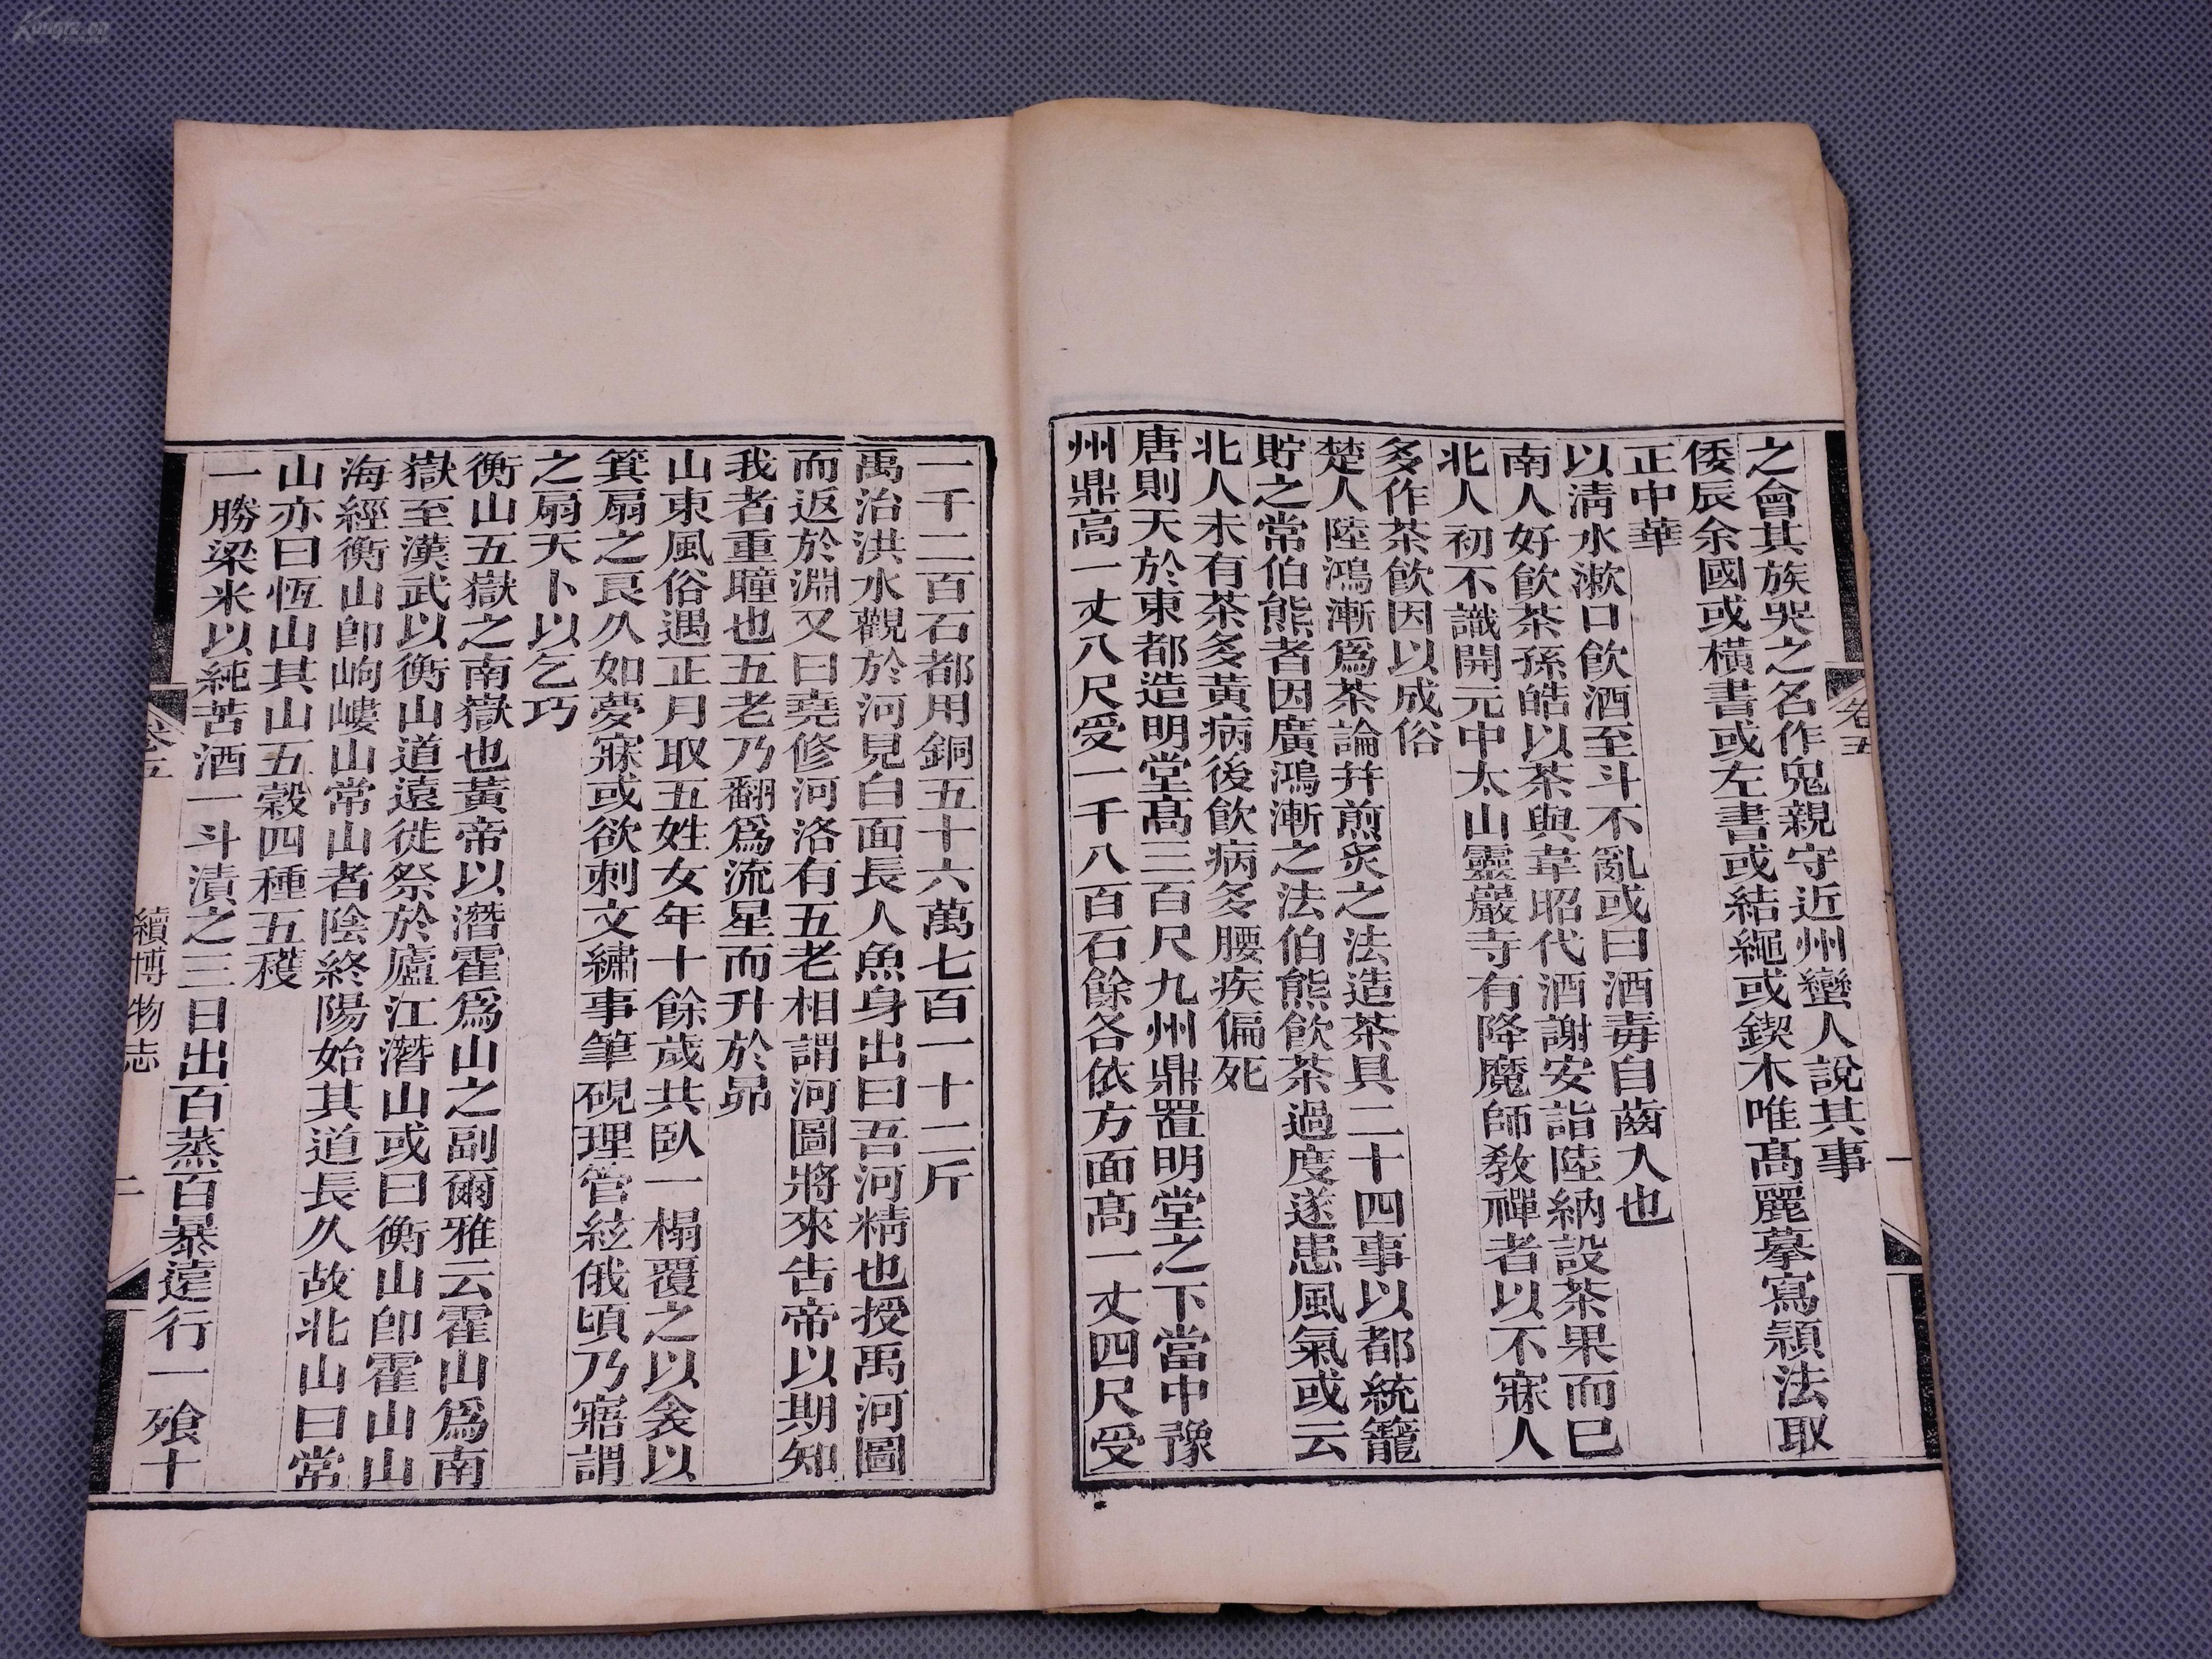 之會其族哭之名作鬼親守近州蠻人說其事
倭辰余國或橫書或左書或結繩或鍥木唯高麗摹寫頴法取
正中華
以淸水漱口飮酒至斗不亂或曰酒毒自齒入也
南人好飮茶孫皓以茶與韋昭代酒謝安詣陸納設茶果而已
北人初不識開元中太山靈巖寺有降魔師敎禪者以不寐人
多作茶飮因以成俗
楚人陸鴻漸爲茶論幷煎炙之法造茶具二十四事以都統籠
貯之常伯熊者因廣鴻漸之法伯熊飮茶過度遂患風氣或云
北人未有茶多黃病後飮病多腰疾偏死
唐則天於東都造明堂高三百尺九州鼎置明堂之下當中豫
州鼎高一丈八尺受一千八百石餘各依方面高一丈四尺受
一千二百石都用銅五十六萬七百一十二斤
禹治洪水觀於河見白面長人魚身出曰吾河精也授禹河圖
而返於淵又曰堯修河洛有五老相謂河圖將來告帝以期知
我者重瞳也五老乃翻爲流星而升於昴
山東風俗遇正月取五姓女年十餘歲共臥一榻覆之以衾以
箕扇之良久如夢寐或欲刺文繡事筆硯理管絃俄頃乃寤謂
之扇天卜以乞巧
衡山五嶽之南嶽也黃帝以潛霍爲山之副爾雅云霍山爲南
嶽至漢武以衡山道遠徙祭於廬江潛山或曰衡山卽霍山山
海經衡山卽岣嶁山常山者陰終陽始其道長久故北山曰常
山亦曰恆山其山五穀四種五穫
一勝梁米以純苦酒一斗漬之三日出百蒸百暴遠行一飱十
卷五
一
卷五
續博物志
二